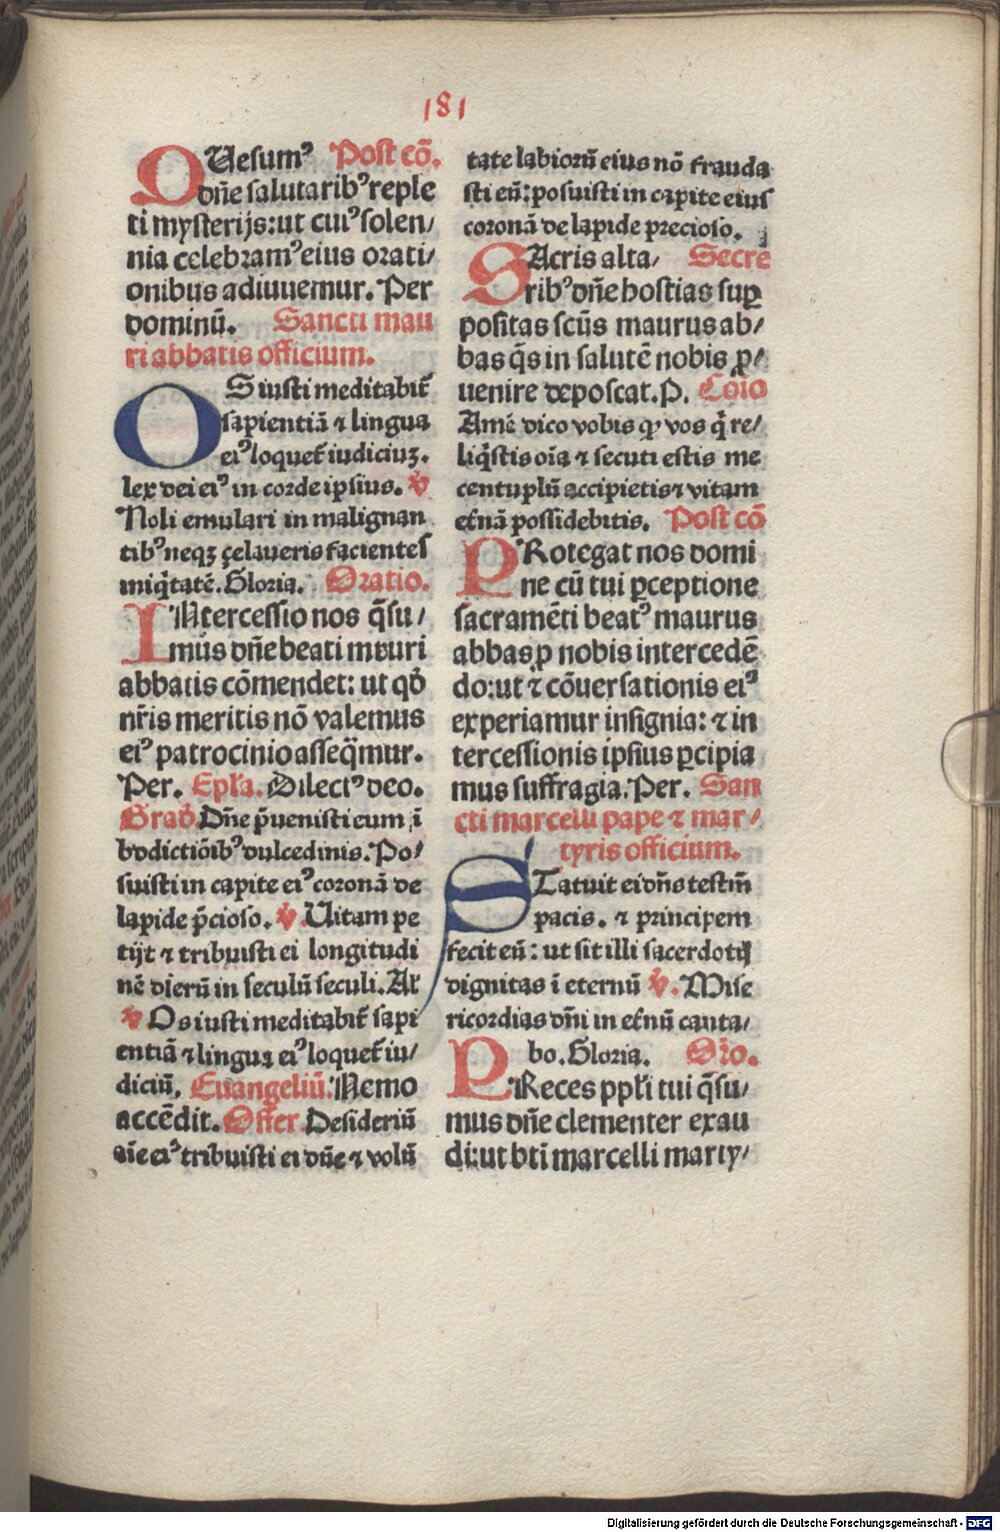 181
QUesumꝰ Post cō.
dn̄e salutaribꝰ reple
ti mysterijs: ut cuiꝰ solen/
nia celebramꝰ eius orati/
onibus adiuuemur. Per
dominū. Sancti mau
ri abbatis officium.
OS iusti meditabit̄
sapientiā ⁊ lingua
eiꝰ loquet̄ iudiciuꝫ.
lex dei eiꝰ in corde ipsius. ꝟ
Noli emulari in malignan
tibꝰ neqꝫ çelaueris facientes
iniq̇tatē. Gloria. Oratio.
INtercessio nos q̄su/
mus dn̄e beati mauri
abbatis cōmendet: ut qḋ
nr̄is meritis nō valemus
eiꝰ patrocinio asseq̄mur.
Per. Epl̄a. Dilectꝰ deo.
Grad̄. Dn̄e p̄uenisti eum ī
b̄dictiōibꝰ dulcedinis. Po/
suisti in capite eiꝰ coronā de
lapide p̄cioso. ꝟ Uitam pe
tijt ⁊ tribuisti ei longitudi
nē dierū in seculū seculi. Al̄
ꝟ Os iusti meditabit̄ sapi
entiā ⁊ lingua eiꝰ loquet̄ iu/
diciū. Euangeliū. Nemo
accēdit. Offer. Desideriū
aīe eiꝰ tribuisti ei dn̄e ⁊ volū
tate labiorū eius nō frauda
sti eū: posuisti in capite eius
coronā de lapide precioso.
SAcris alta/ Secre
ribꝰ dn̄e hostias suꝑ
positas scūs maurus ab/
bas q̄s in salutē nobis ꝓ/
uenire deposcat. P. Cōio
Amē dico vobis ꝙ vos q̇ re/
liq̇stis oīa ⁊ secuti estis me
centuplū accipietis ⁊ vitam
et̄nā possidebitis. Post cō
PRotegat nos domi
ne cū tui ꝑceptione
sacramēti beatꝰ maurus
abbas ꝓ nobis intercedē
do: ut ⁊ cōuersationis eiꝰ
experiamur insignia: ⁊ in
tercessionis ipsius ꝑcipia
mus suffragia. Per. San
cti marcelli pape ⁊ mar/
tyris officium.
STatuit ei dn̄s testm̄
pacis. ⁊ principem
fecit eū: ut sit illi sacerdotij
dignitas ī eternū ꝟ. Mise
ricordias dn̄i in et̄nū canta/
bo. Gloria. Or̄o.
PReces ppl̄i tui q̄su/
mus dn̄e clementer exau
di: ut bt̄i marcelli marty/
Digitalisierung gefördert durch die Deutsche Forschungsgemeinschaft - DFG